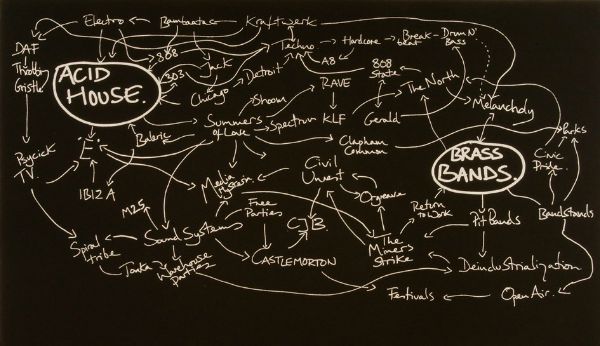 Electro
Bambaataa
Kraftwerk
DAF
Throbbing
Gristle
ACID
HOUSE.
808
303
Jack
Chicago
Detroit
Techno
Hardcore
Break-
beat
Drum N'
Bass
A8
RAVE
808
State
The North
Melancholy
Shoom
Summer
of Love
Spectrum
KLF
Gerald
Clapham
Common
Parks
Civic
Pride
BRASS
BANDS.
Baleric
E
Psychick
IBIZA
Media
Hysteria
Civil
Unrest
Orgreave
Return
to Work
Pit Bands
Bandstands
M25
Free
Parties
CJB.
Spiral
tribe
Sound Systems
Tonka
Warehouse
parties
CASTLEMORTON
The
Miners
Strike
Deindustrialization
Festivals
Open Air.